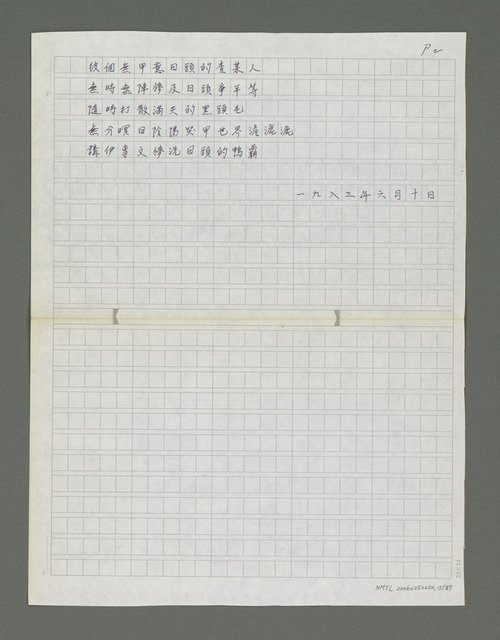 P2
彼個無甲意日頭的查某人
無時無陣儜及日頭爭平等
隨時打散滿天的黑頭毛
無分暝日陰陽哭甲世界澹漉漉
講伊專文儜洗日頭的鴨霸
一九八三年六月十日
NMTL 20060250020,13/87